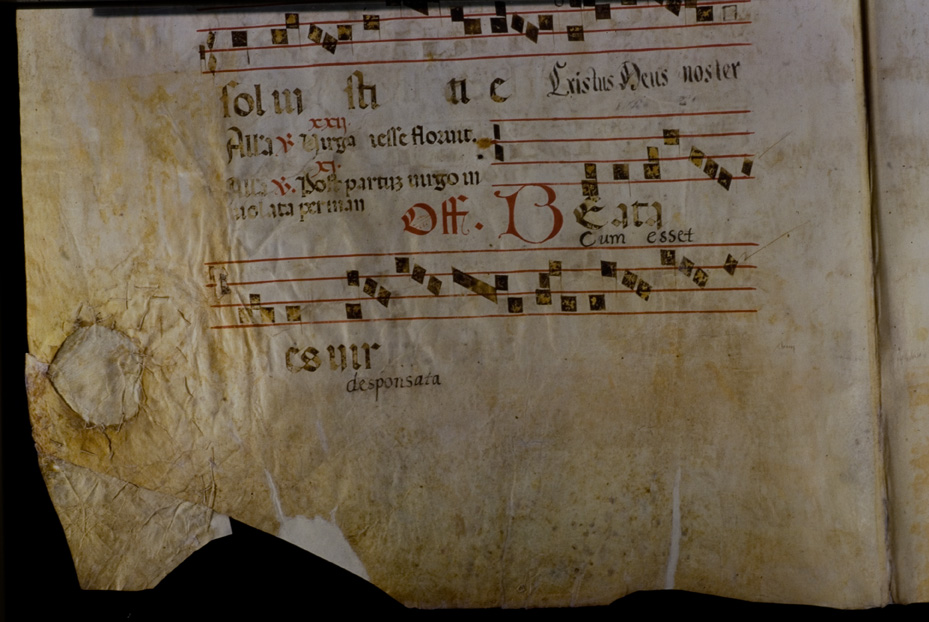 solui sti ti c Cristus Deus noster
xxii.
Alla ℣ Uirga iesse floruit.
xi.
Alla ℣. Post partuz uirgo in
uiolata perman
Off. B Eata
Cum esset
es uir
desponsata